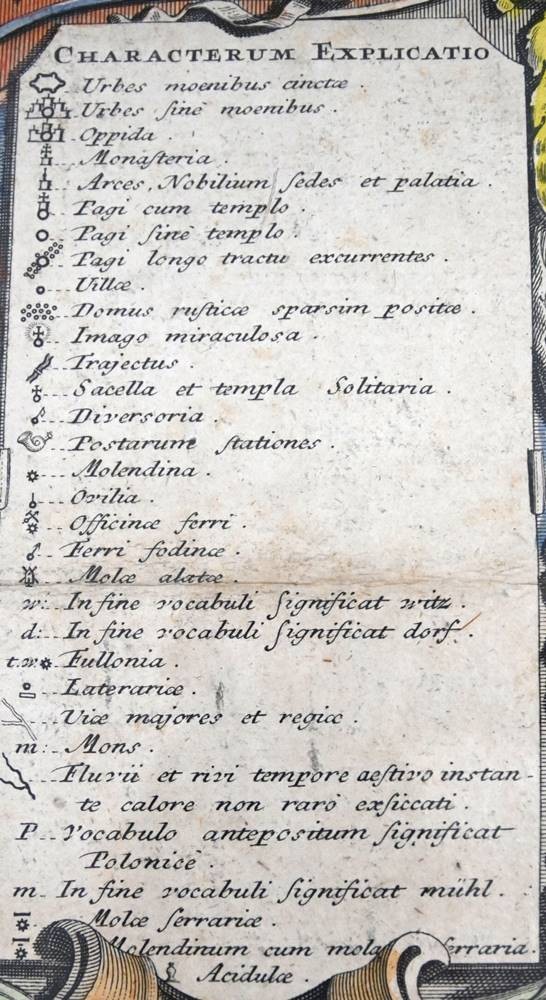 CHARACTERUM EXPLICATIO
Urbes moenibus cinctæ.
Urbes sinè moenibus.
Oppida.
Monasteria.
Arces, Nobilium sedes et palatia.
Pagi cum templo.
Pagi sinè templo.
Pagi longo tractu excurrentes.
Villæ.
Domus rusticæ sparsim positæ.
Imago miraculosa.
Trajectus.
Sacella et templa Solitaria.
Diversoria.
Postarum stationes.
Molendina.
Ovilia.
Officinæ ferri.
Ferri fodinæ.
Molæ alatæ.
w: In fine vocabuli significat witz.
d: In fine vocabuli significat dorf.
t.w. Fullonia.
Laterariæ.
Viæ majores et regiæ.
m: Mons.
Fluvii et rivi tempore æstivo instan-
te calore non rarò exsiccati.
P. vocabulo antepositum significat
Polonicè.
m. In fine vocabuli significat mühl.
Molæ serrariæ.
Molendinum cum mola serraria.
Acidulæ.